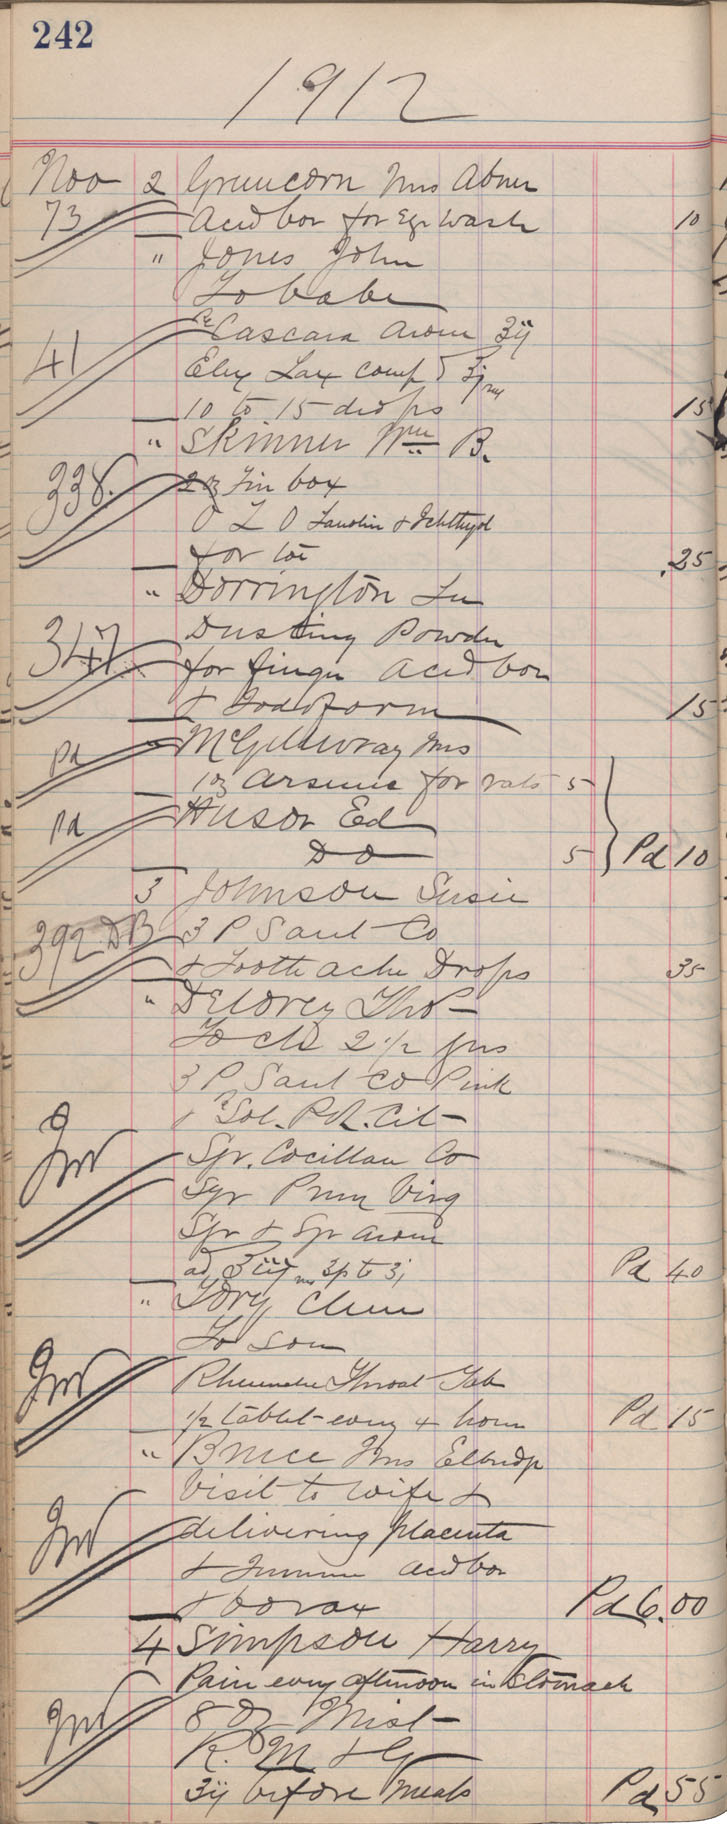 242
1912
Nov 2 Greencorn Mrs Abner
73 Acid bor for Eye Wash 10
" Jones John
To babe
Rx Cascara Arom ʒij
41 Elix Lax comp ʒj
10 to 15 drops 15
" Skinner Wm B.
338. 2 oz Tin box
O L O Lanolin & Ichthyol
for toe .25
" Dorrington Lu
347 Dusting Powder
for finger Acid bor
& Iodoform 15
Pd McGillivray Mrs
1 oz Arsenic for rats 5
Pd Huson Ed
Do 5 Pd 10
3 Johnson Susie
392 DB 3 P Sant Co
& Tooth ache Drops 35
" Delorey Tho
To ch 2 1/2 yrs
3 P Sant Co Pink
Sol. Pot. Cit
Syr. Cocillan Co
Syr Prun Virg
Syr & Sp Arom
ad ʒiij ʒss to ʒj Pd 40
" Tory Clem
To son
Rheumatic Throat Tab
1/2 tablet every 4 hours Pd 15
" Bruce Mrs Elbridge
Visit to wife &
delivering placenta
& acid bor
& borax Pd 6.00
4 Simpson Harry
Pain every afternoon in Stomach
8 oz Mist
R. M & G
ʒij before meals Pd 55